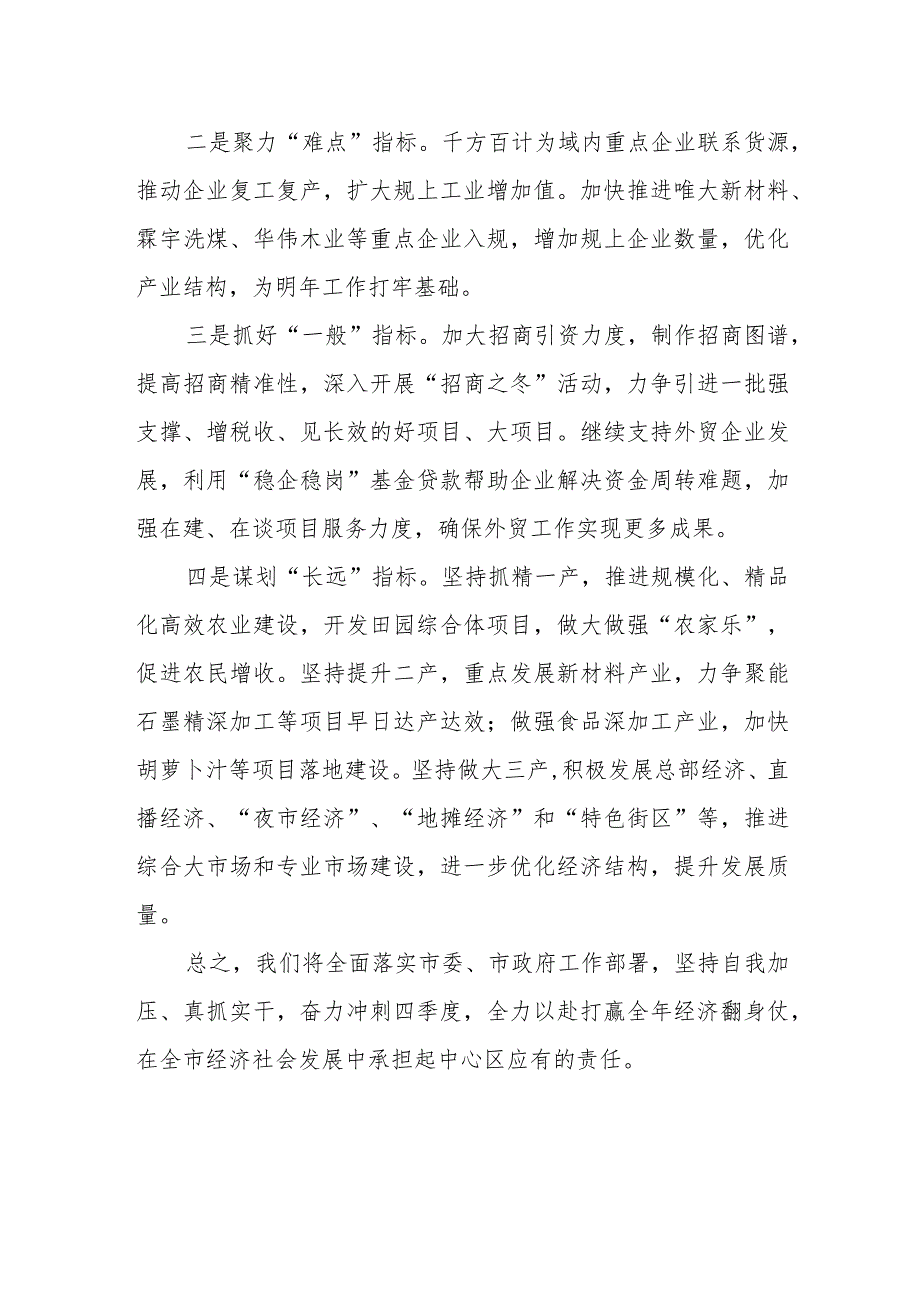 二是聚力“难点”指标。千方百计为域内重点企业联系货源，
推动企业复工复产，扩大规上工业增加值。加快推进唯大新材料、
霖宇洗煤、华伟木业等重点企业入规，增加规上企业数量，优化
产业结构，为明年工作打牢基础。
三是抓好“一般”指标。加大招商引资力度，制作招商图谱，
提高招商精准性，深入开展“招商之冬”活动，力争引进一批强
支撑、增税收、见长效的好项目、大项目。继续支持外贸企业发
展，利用“稳企稳岗”基金贷款帮助企业解决资金周转难题，加
强在建、在谈项目服务力度，确保外贸工作实现更多成果。
四是谋划“长远”指标。坚持抓精一产，推进规模化、精品
化高效农业建设，开发田园综合体项目，做大做强“农家乐”，
促进农民增收。坚持提升二产，重点发展新材料产业，力争聚能
石墨精深加工等项目早日达产达效；做强食品深加工产业，加快
胡萝卜汁等项目落地建设。坚持做大三产,积极发展总部经济、直
播经济、“夜市经济”、“地摊经济”和“特色街区”等，推进
综合大市场和专业市场建设，进一步优化经济结构，提升发展质
量。
总之，我们将全面落实市委、市政府工作部署，坚持自我加
压、真抓实干，奋力冲刺四季度，全力以赴打赢全年经济翻身仗，
在全市经济社会发展中承担起中心区应有的责任。